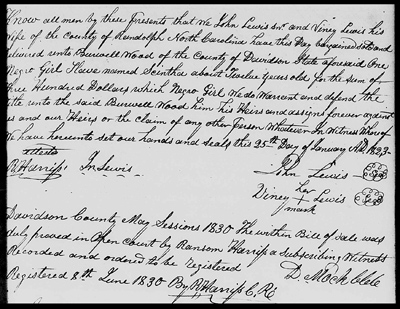 Know all men by these presents that we John Lewis Snr. and Viney Lewis his
Wife of the County of Randolph North Carolina have this Day bargained sold and
delivered unto Burwell Wood of the County of Davidson State aforesaid One
Negro Girl Slave named Scintha about Twelve years old for the sum of
three Hundred Dollars which Negro Girl We do Warrent and defend the
title unto the said Burwell Wood him his Heirs and assigns forever against
us and our Heirs or the claim of any other Person Whatever In Witness Whereof
We have hereunto set our hands and seals this 25th Day of January AD. 1823
Attests
R. Harriss Jn Lewis
John Lewis Seal
her
Viney + Lewis Seal
mark
Davidson County May Sessions 1830 The within Bill of sale was
duly proved in Open Court by Ransom Harriss a subscribing Witness
Recorded and ordered to be registered
D. Mock Clk
Registered 8th June 1830 By R Harriss